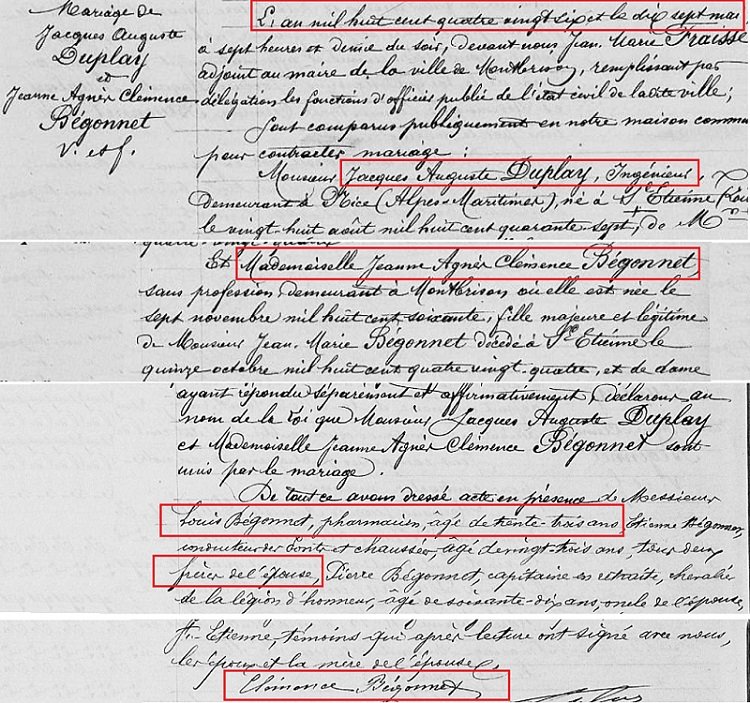 Mariage de
Jacques Auguste
Duplay
et
Jeanne Agnès Clémence
Bégonnet
V. et f.
L'an mil huit cent quatre vingt six et le dix sept mai
à sept heures et demie du soir, devant nous Jean Marie Fraisse
adjoint au maire de la ville de Montbrison, remplissant par
délégation les fonctions d'officier public de l'état civil de ladite ville;
Sont comparus publiquement en notre maison commune
pour contracter mariage :
Monsieur Jacques Auguste Duplay, Ingénieur,
demeurant à Nice (Alpes-Maritimes), né à St Etienne (Loi
le vingt-huit août mil huit cent quarante-sept, de Mr
Et Mademoiselle Jeanne Agnès Clémence Bégonnet,
sans profession, demeurant à Montbrison où elle est née le
sept novembre mil huit cent soixante, fille majeure et légitime
de Monsieur Jean Marie Bégonnet décédé à St Etienne le
quinze octobre mil huit cent quatre vingt-quatre, et de dame
ayant répondu séparément et affirmativement, déclarons au
nom de la loi que Monsieur Jacques Auguste Duplay
et Mademoiselle Jeanne Agnès Clémence Bégonnet sont
unis par le mariage.
De tout ce avons dressé acte en présence de Messieurs
Louis Bégonnet, pharmacien, âgé de trente-trois ans, Etienne Bégonnet,
conducteur des Ponts et chaussées, âgé de vingt-trois ans, tous deux
frères de l'épouse, Pierre Bégonnet, capitaine en retraite, chevalier
de la légion d'honneur, âgé de soixante-dix ans, oncle de l'épouse,
St Etienne, témoins qui après lecture ont signé avec nous,
les époux et la mère de l'épouse.
Clémence Bégonnet